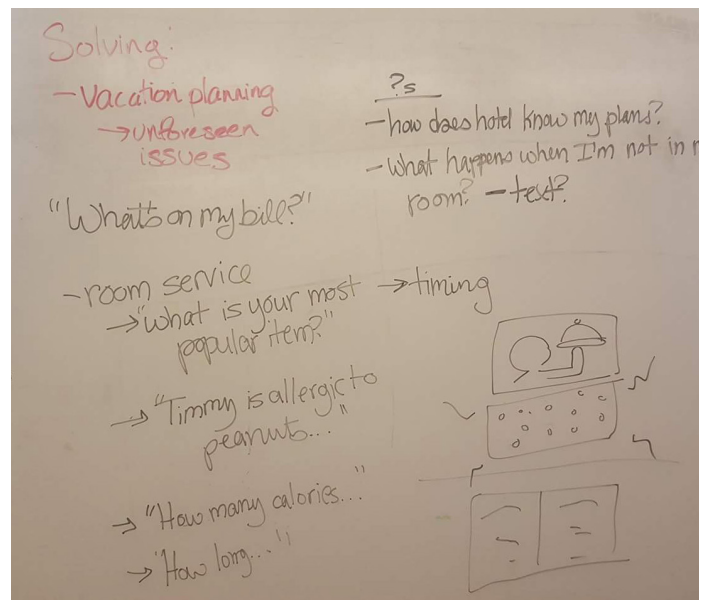 Solving:
- Vacation planning
→ unforeseen
issues
"What's on my bill?"
- room service
→ "What is your most → timing
popular item?"
→ "Timmy is allergic to
peanuts..."
→ "How many calories..."
→ "How long..."
?s
- how does hotel know my plans?
- What happens when I'm not in
room? - text?